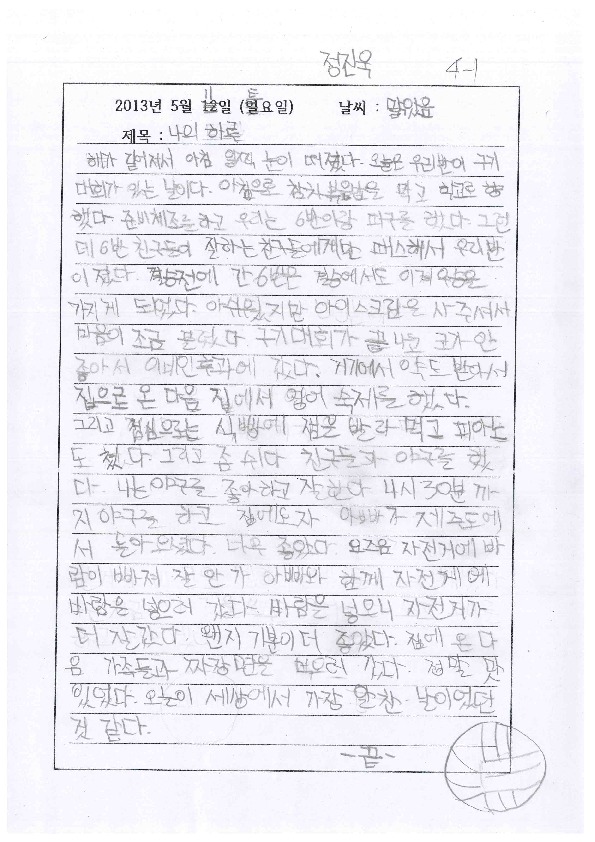 정진욱 4-1
2013년 5월 11일 (토요일) 날씨 : 맑았음
제목 : 나의 하루
해가 길어져서 아침 일찍 눈이 떠졌다. 오늘은 우리반이 구기
대회가 있는 날이다. 아침으로 참치볶음밥을 먹고 학교로 향
했다. 준비체조를 하고 우리는 6반이랑 피구를 했다. 그런
데 6반 친구들이 잘하는 친구들에게만 패스해서 우리반
이 졌다. 결승전에 간 6반은 결승에서도 이겨 우승을
가지게 되었다. 아쉬웠지만 아이스크림은 사주셔서
마음이 조금 풀렸다. 구기대회가 끝나고 코가 안
좋아서 이비인후과에 갔다. 거기에서 약도 받아서
집으로 온 다음 집에서 영어 숙제를 했다.
그리고 점심으로는 식빵에 잼을 발라 먹고 피아노
도 쳤다. 그리고 좀 쉬다 친구들과 야구를 했
다. 나는 야구를 좋아하고 잘한다. 4시 30분 까
지 야구를 하고 집에오자 아빠가 제주도에
서 돌아오셨다. 너무 좋았다. 요즈음 자전거에 바
람이 빠져 잘 안 가 아빠와 함께 자전거에
바람을 넣으러 갔다. 바람을 넣으니 자전거가
더 잘갔다. 왠지 기분이 더 좋았다. 집에 온 다
음 가족들과 짜장면을 먹으러 갔다. 정말 맛
있었다. 오늘이 세상에서 가장 알찬 날이었던
것 같다.
-끝-